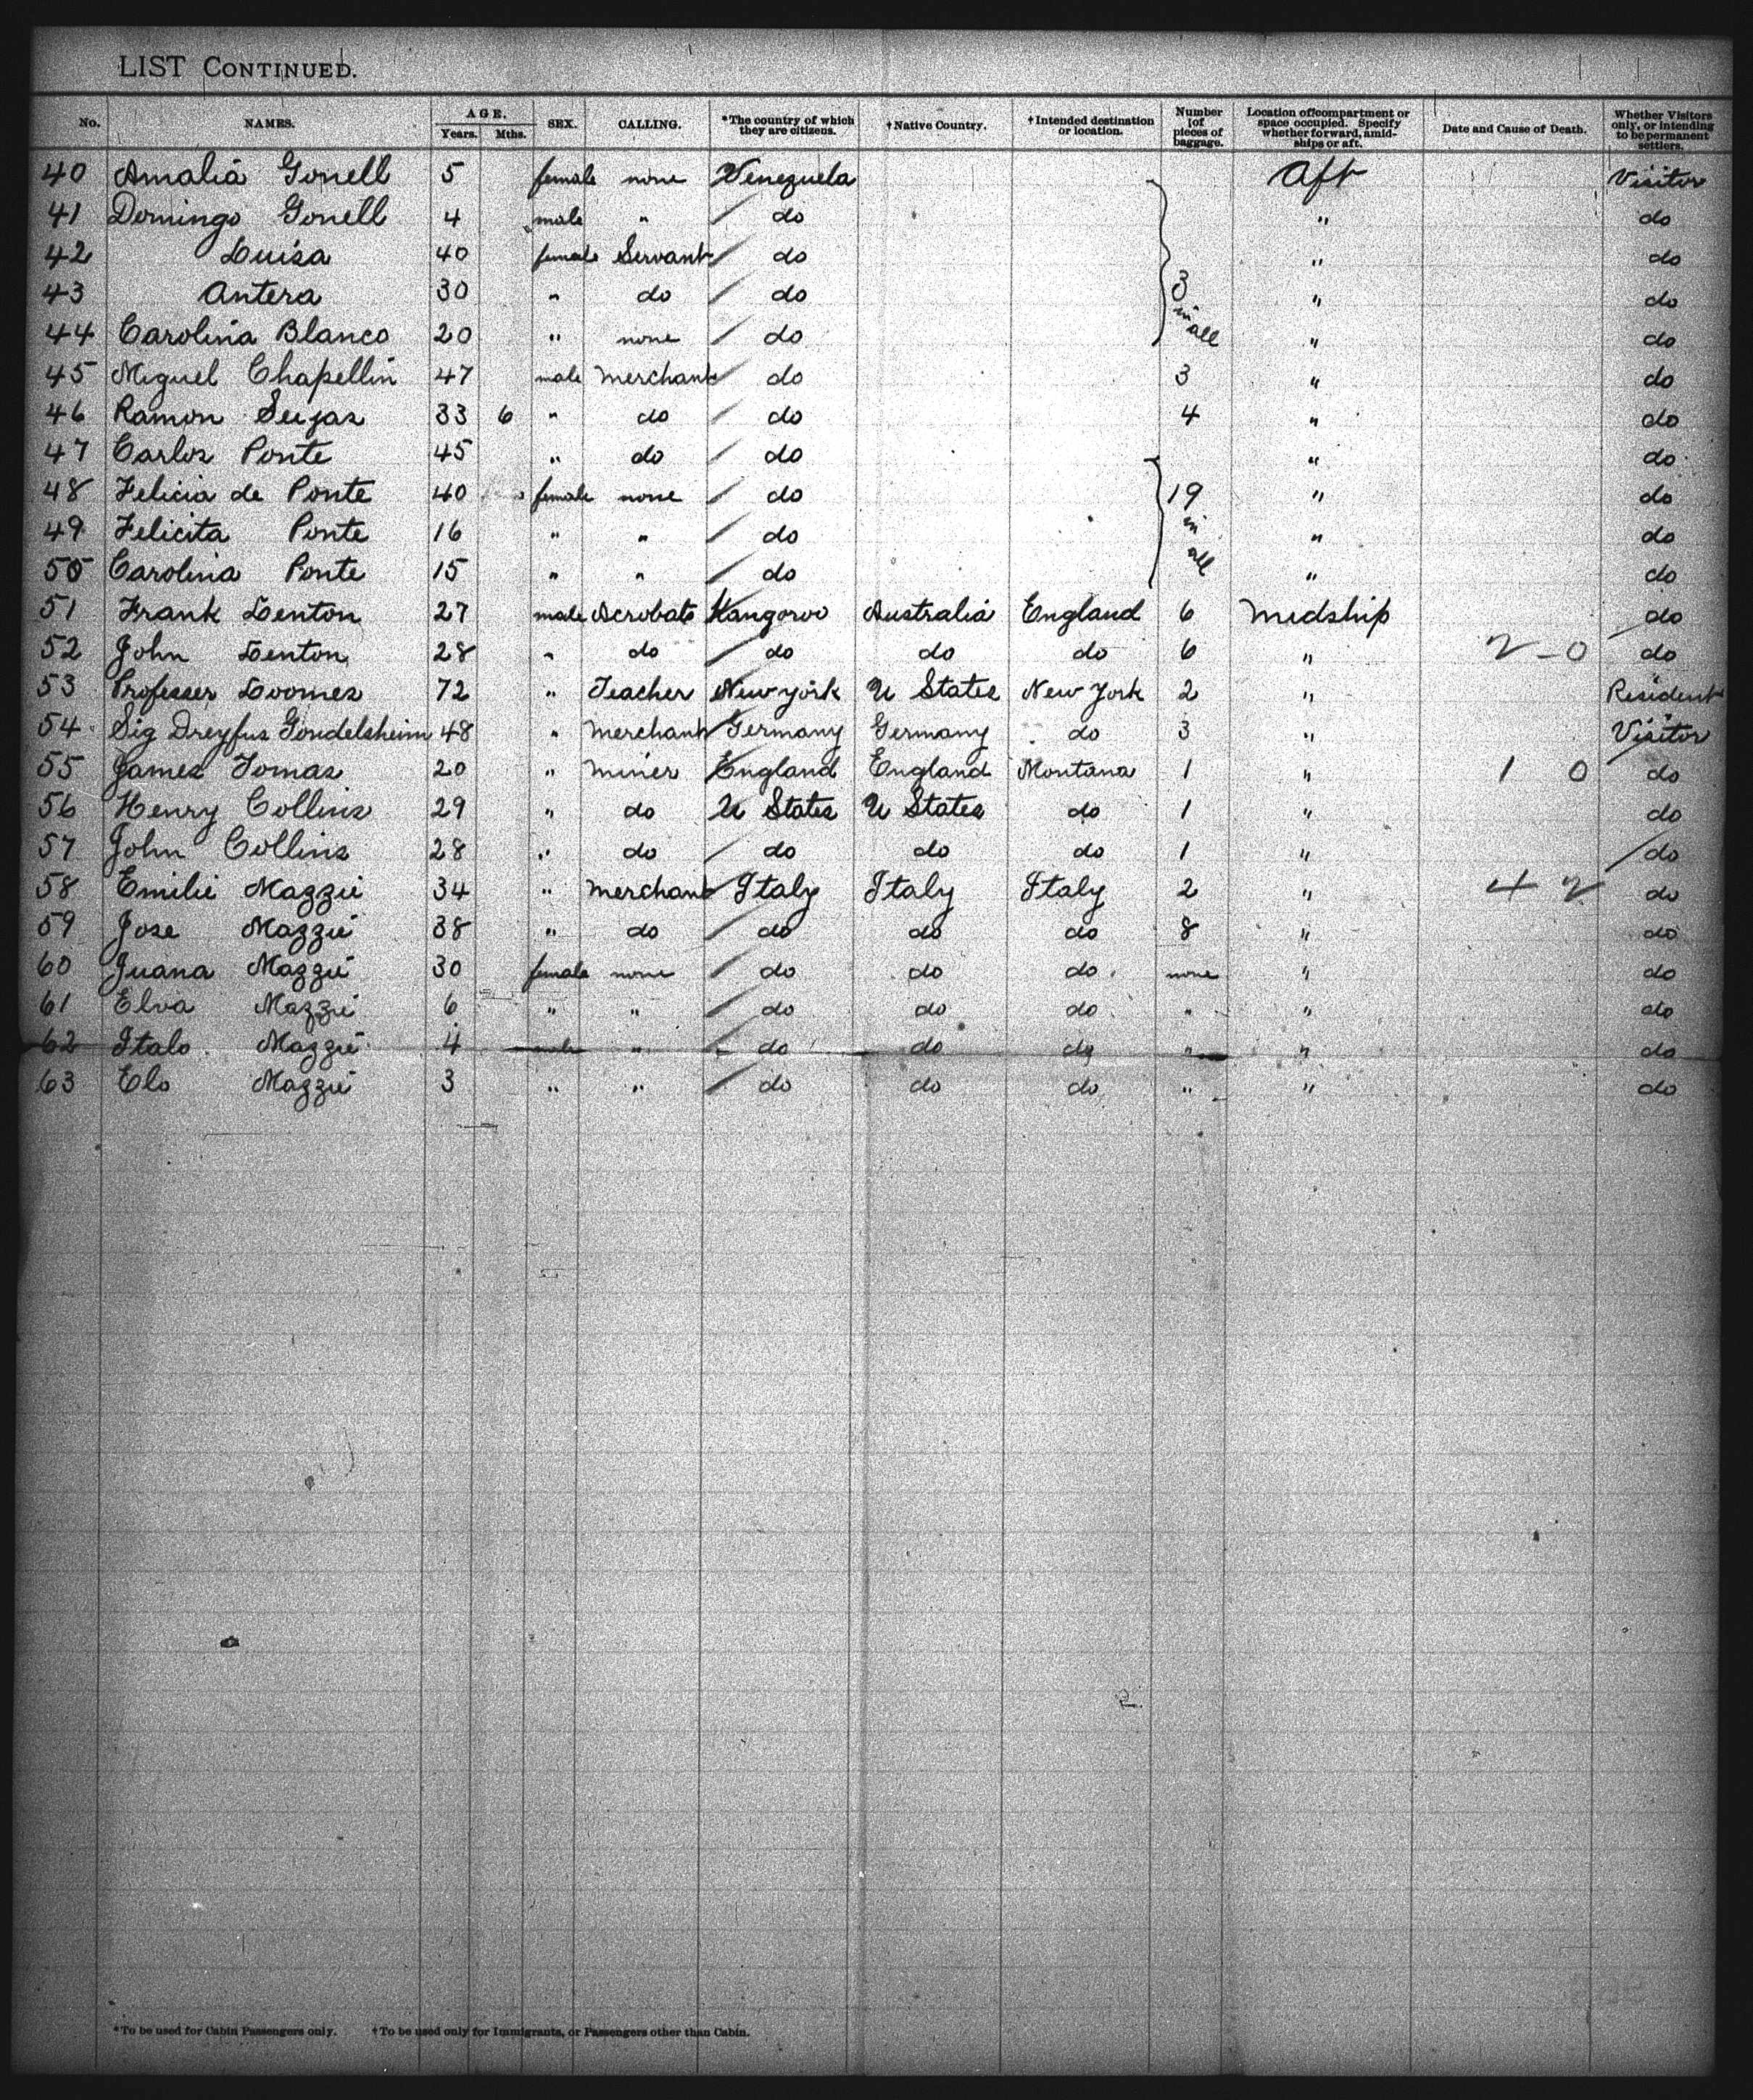 LIST CONTINUED.
No. NAMES. AGE. Years. Mths. SEX. CALLING. *The country of which they are citizens. †Native Country. †Intended destination or location. Number of pieces of baggage. Location of compartment or space occupied. Specify whether forward, amidships or aft. Date and Cause of Death. Whether Visitors only, or intending to be permanent settlers.
40 Amalia Gonell 5 female none Venezuela Aft Visitor
41 Domingo Gonell 4 male " do " do
42 Luisa 40 female Servant do " do
43 Antera 30 " do do 3 in all " do
44 Carolina Blanco 20 " none do " do
45 Miguel Chapellin 47 male merchant do 3 " do
46 Ramon Seijas 33 6 " do do 4 " do
47 Carlos Ponte 45 " do do " do
48 Felicia de Ponte 40 female none do 19 in all " do
49 Felicita Ponte 16 " " do " do
50 Carolina Ponte 15 " " do " do
51 Frank Lenton 27 male Acrobats Kangoroo Australia England 6 Midship do
52 John Lenton 28 " do do do do 6 " 2-0 do
53 Professer Loomes 72 " Teacher New York U States New York 2 " Resident
54 Sig Dreyfus Gondelsheim 48 " merchant Germany Germany do 3 " Visitor
55 James Tomas 20 " miner England England Montana 1 " 1 0 do
56 Henry Collins 29 " do U States U States do 1 " do
57 John Collins 28 " do do do do 1 " do
58 Emilie Mazzie 34 " merchant Italy Italy Italy 2 " 4 2 do
59 Jose Mazzie 38 " do do do do 8 " do
60 Juana Mazzie 30 female none do do do none " do
61 Elva Mazzie 6 " " do do do " " do
62 Italo Mazzie 4 male " do do do " " do
63 Elo Mazzie 3 " " do do do " " do
*To be used for Cabin Passengers only. †To be used only for Immigrants, or Passengers other than Cabin.